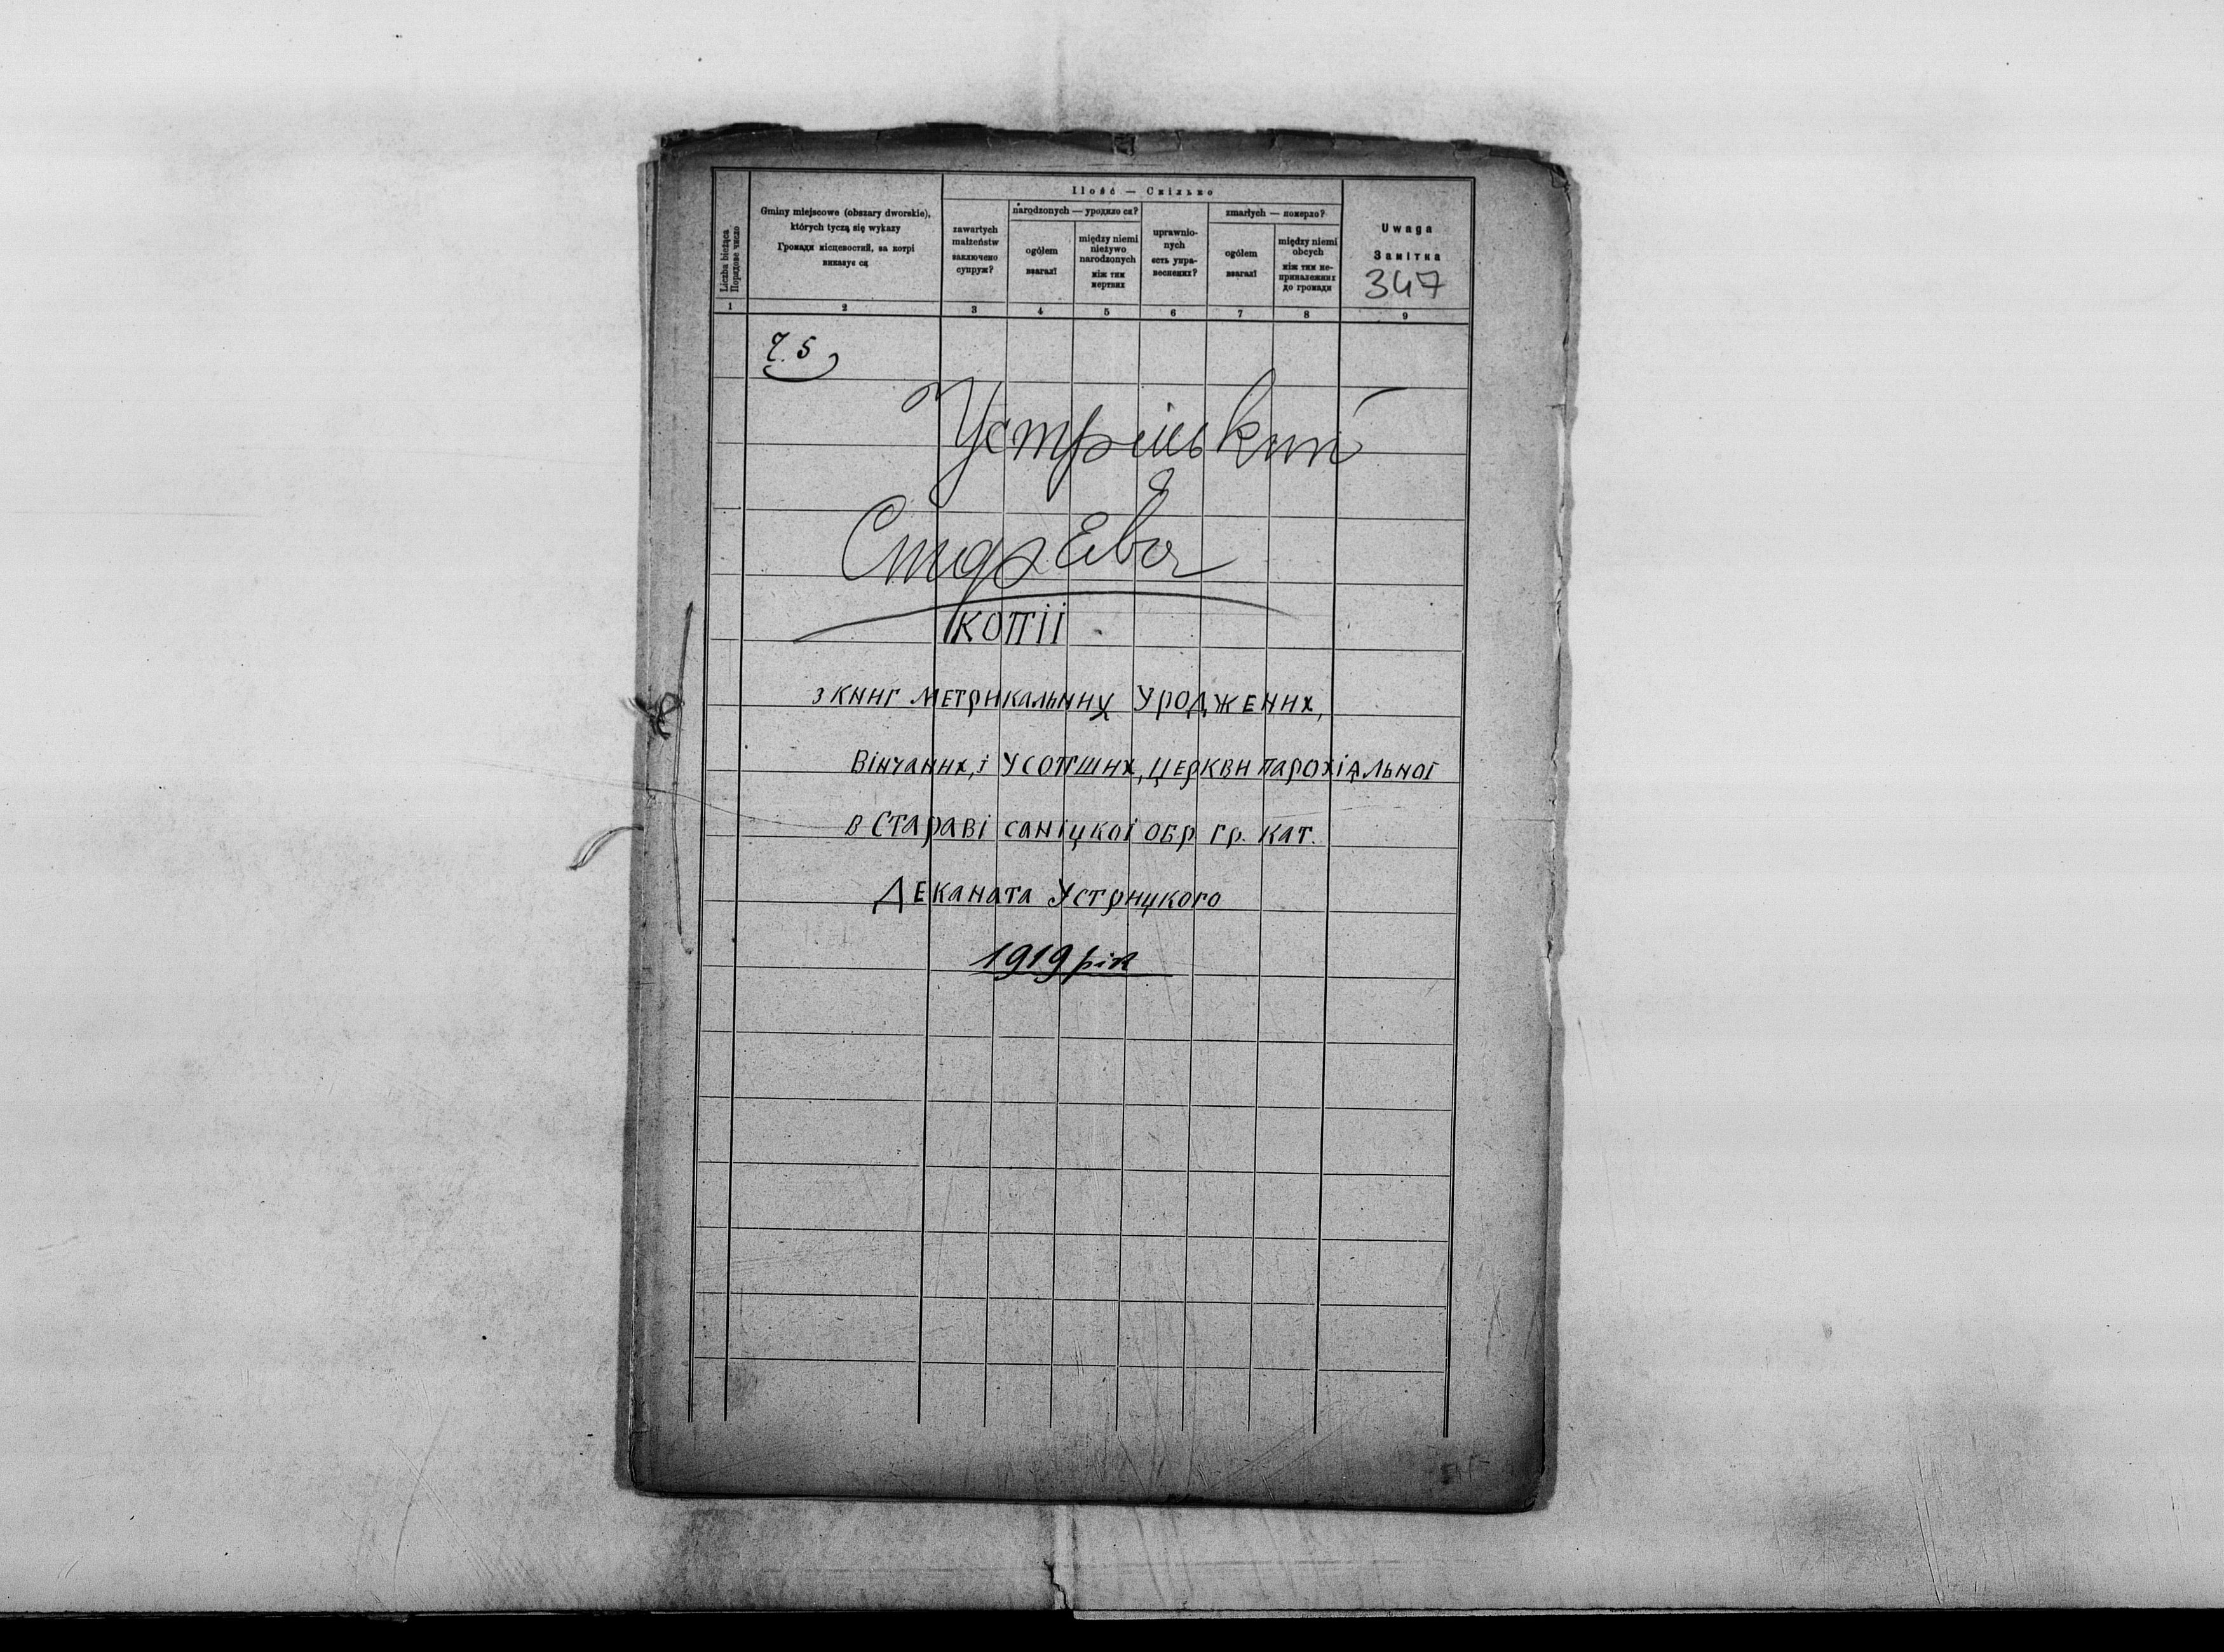 Ilość — Скілько
Liczba bieżąca
Порядове число
Gminy miejscowe (obszary dworskie),
których tyczą się wykazy
Громади місцевостий, за котрі
виказує ся
zawartych
małżeństw
заключено
супруж?
narodzonych — уродило ся?
ogółem
взагалї
między niemi
nieżywo
narodzonych
між тим
мертвих
uprawnio-
nych
єсть упра-
воснених?
zmarłych — померло?
ogółem
взагалї
między niemi
obcych
між тим не-
приналежних
до громади
Uwaga
Замітка
347
1 2 3 4 5 6 7 8 9
Ч. 5
Устрільский
Старева
КОПІЇ
з книг метрикальних уроджених,
Вінчаних, і усопших, церкви парохіяльної
в Стараві саніцкої обр гр. кат.
Деканата Устрицкого
1919 рік